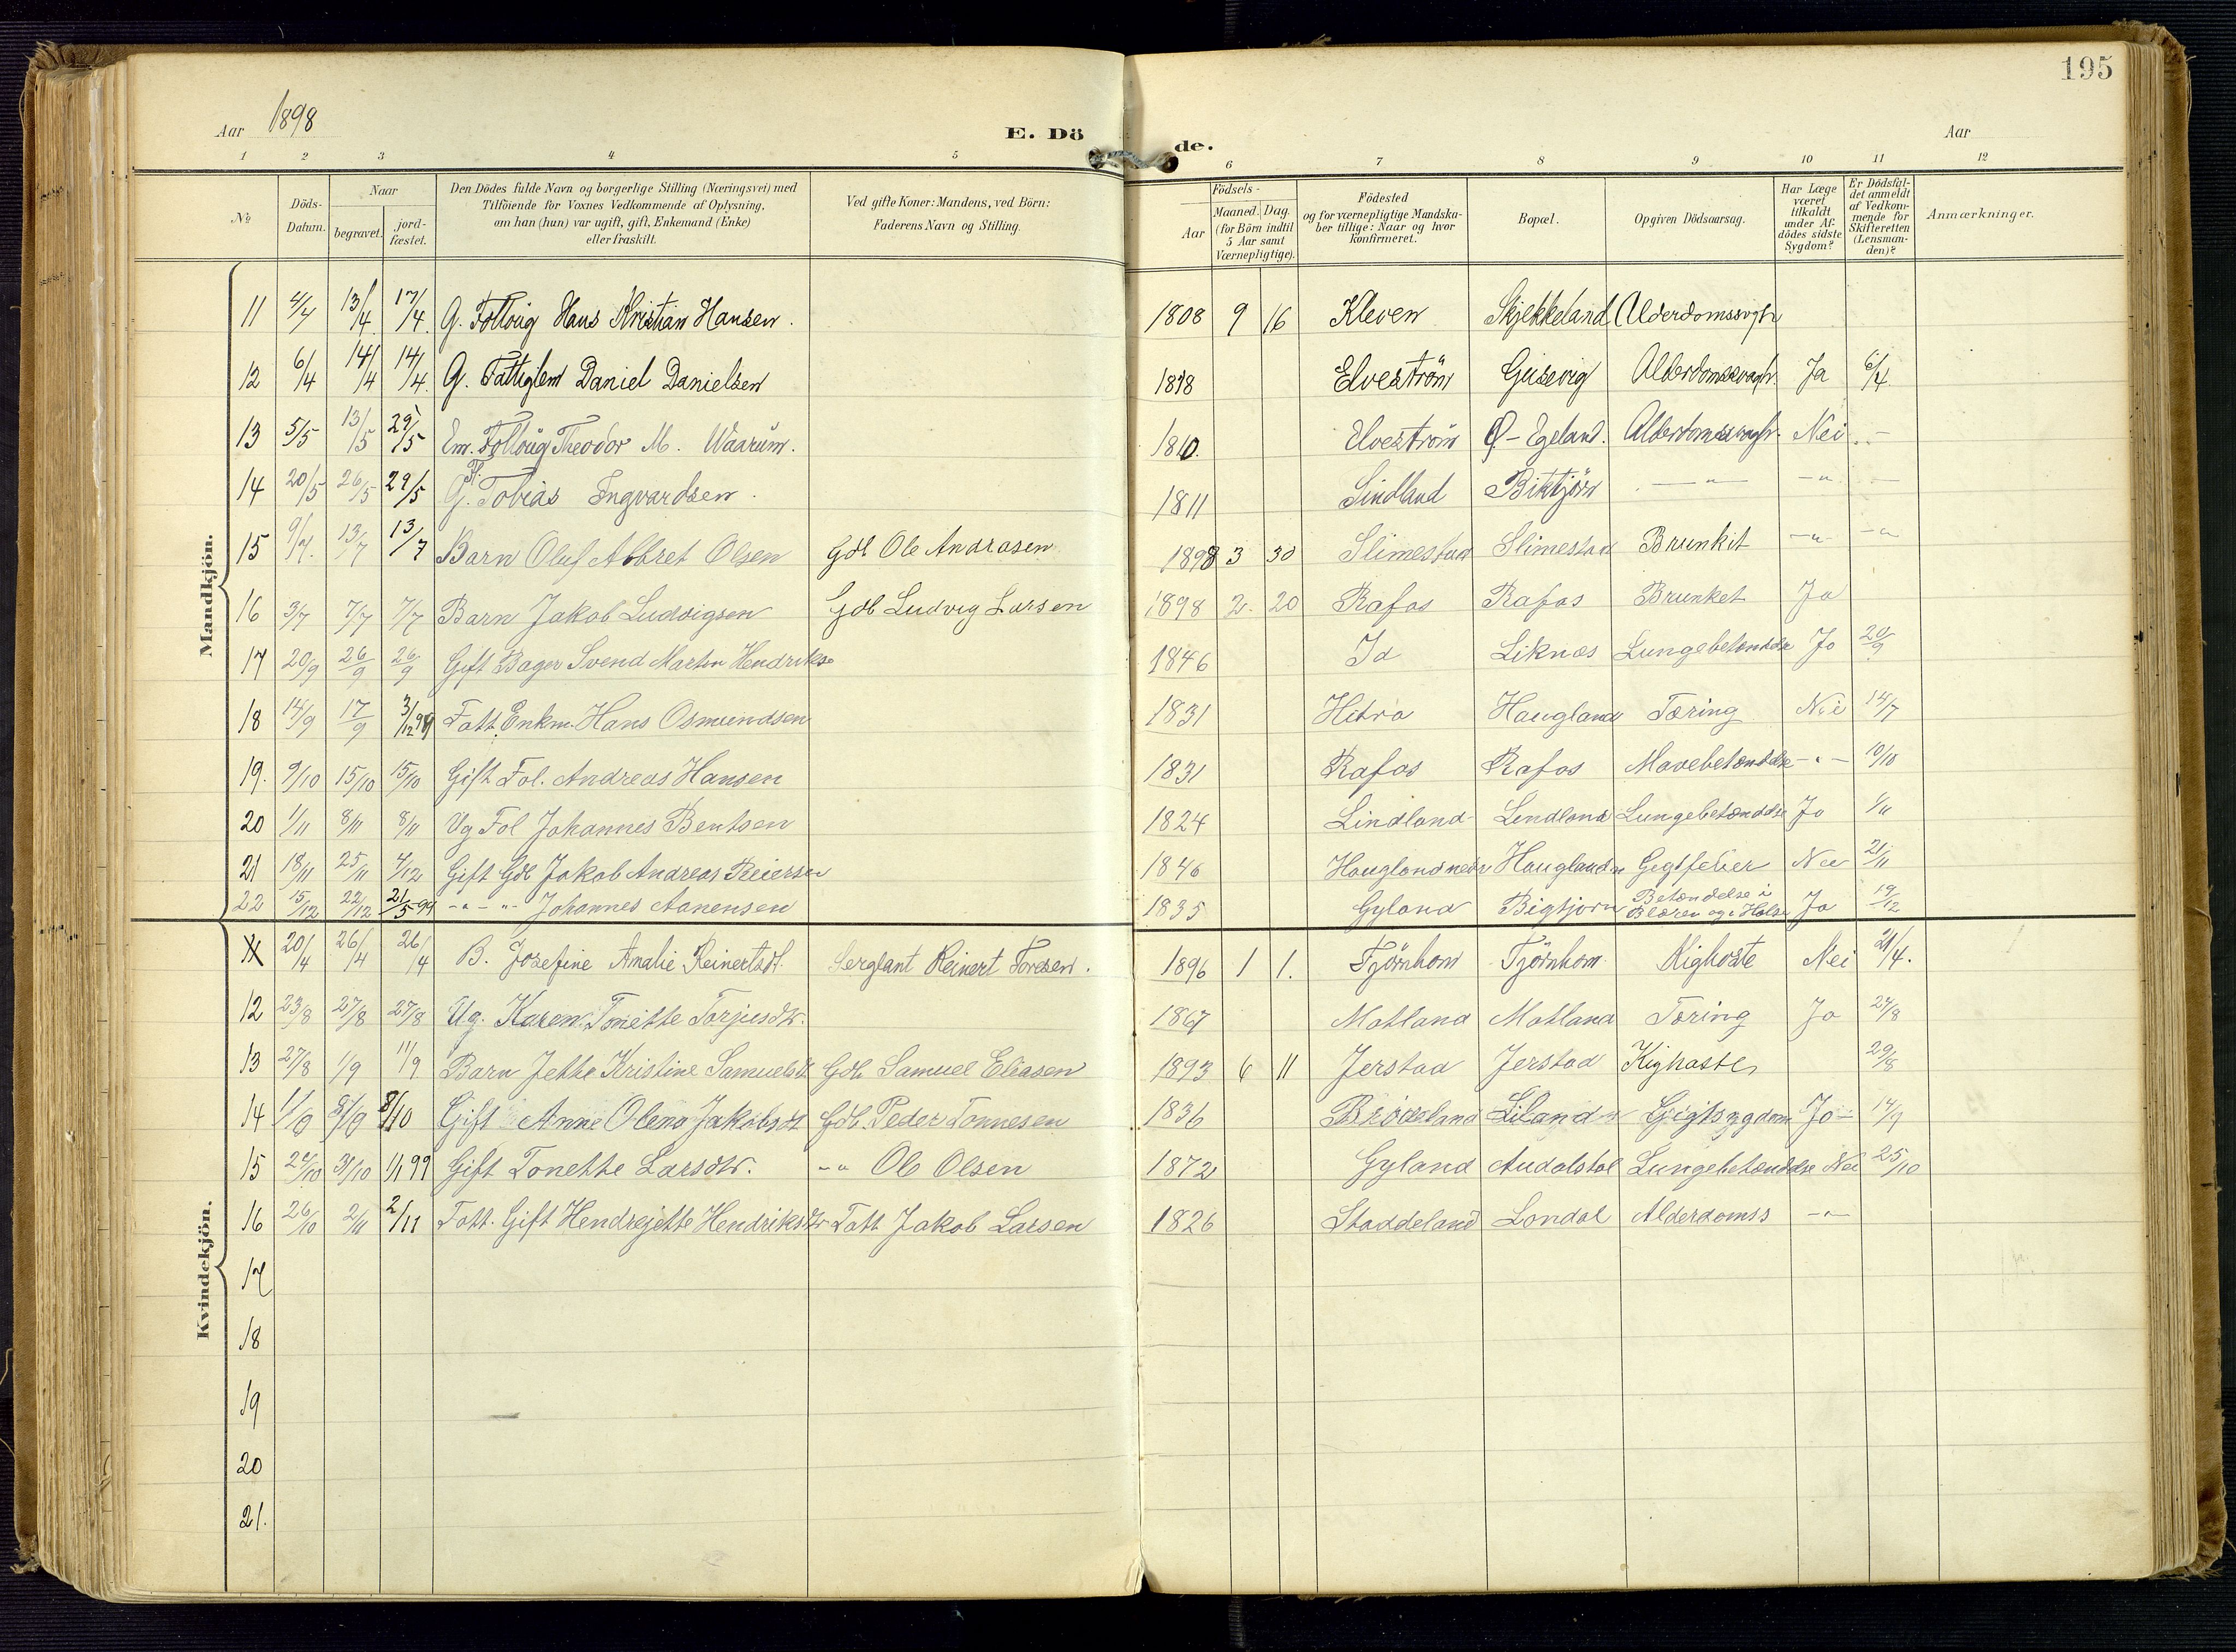 195
Aar 1898
E. Dö de.
Aar
1 2 3 4 5 6 7 8 9 10 11 12
№
Döds-Datum.
Naar
begravet.
jord-fæstet.
Den Dödes fulde Navn og borgerlige Stilling (Næringsvei) med
Tilföiende for Voxnes Vedkommende af Oplysning,
om han (hun) var ugift, gift, Enkemand (Enke)
eller fraskilt.
Ved gifte Koner: Mandens, ved Börn:
Faderens Navn og Stilling.
Födsels-
Aar
Maaned. Dag.
(for Börn indtil
5 Aar samt
Værnepligtige).
Födested
og for værnepligtige Mandska-
ber tillige: Naar og hvor
konfirmeret.
Bopæl.
Opgiven Dödsaarsag.
Har Læge
været
tilkaldt
under Af-
dödes sidste
Sygdom?
Er Dödsfal-
det anmeldt
af Vedkom-
mende for
Skifteretten
(Lensman-
den)?
Anmærkninger.
Mandkjön.
11 4/4 13/4 17/4 G. Follaug Hans Kristian Hansen. 1808 9 16 Kleven Skjekkeland Alderdomssvagh
12 6/4 14/4 14/4 G. Fattiglem Daniel Danielsen 1818 Elveström Geisevig Alderdomssvagh. Ja 6/4
13 5/5 13/5 29/5 Em. Follaug Theodor M. Waarum. 1810. Elveström Ø-Egeland. Alderdomssvagh. Nei -
14 20/5 26/5 29/5 G. Fl. Tobias Ingvardsen. 1811 Lindland Biktjörn -"- -"- -
15 9/7. 13/7 13/7 Barn Oluf Albret Olsen Gdb Ole Andrasen 1898 3 30 Slimestad Slimestad Brunkit -"- -"
16 3/7 7/7 7/7 Barn Jakob Ludvigsen Gdb Ludvig Larsen 1898 2. 20 Rafos Rafos Brunket Ja
17 20/9 26/9 26/9 Gift Bager Svend Martin Hendrikse 1846 Id Liknæs Lungebetændelse Ja 20/9
18 14/9 17/9 3/12 98 Fatt. Enkm. Hans Osmundsen 1831 Hitra Haugland Tæring Nei 14/7
19. 9/10 15/10 15/10 Gift Fol. Andreas Hansen 1831 Rafos Rafos Mavebetændelse -"- 10/10
20 1/11 8/11 8/11 Ug Fol Johannes Bentsen 1824 Lindland Lindland Lungebetændelse Ja 1/11
21 18/11 25/11 4/12 Gift Gdb Jakob Andreas Reiersen 1846 Haugland nedr Haugland n Gigtfeber Nei 21/11
22 15/12 22/12 21/5 99 -"- -"- Johannes Aanensen 1835 Gyland Bigtjorn Betændelse i Blæren og i Halse Ja 19/12
Kvindekjön.
11 20/4 26/4 26/4 B. Josefine Amalie Reinertsdt. Sergiant Reinert Toresen. 1896 1 1. Tjörnhom Tjörnhom Kighoste Nei 21/4.
12 23/8 27/8 27/8 Ug. Karen Tonette Torjusdtr. 1867 Motland Motland Tæring Ja 24/8
13 27/8 1/9 11/9 Barn Jette Kristine Samuelsdt Gdb. Samuel Eliasen 1893 6 11 Jerstad Jerstad Kighoste 29/8
14 1/9 8/9 8/10 Gift Anne Olena Jakobsdt Gdb. Peder Tonnesen 1836 Brödeland Liland Gigtsygdom Ja 14/9
15 22/10 31/10 1/1 99 Gift Tonette Larsdtr. -"- Ole Olsen 1872 Gyland Audalstol Lungebetændelse Nei 25/10
16 26/10 2/11 2/11 Fatt. Gift Hendrejette Hendriksdtr Fatt Jakob Larsen 1826 Staddeland Londal Alderdomss -"-
17
18
19
20
21.